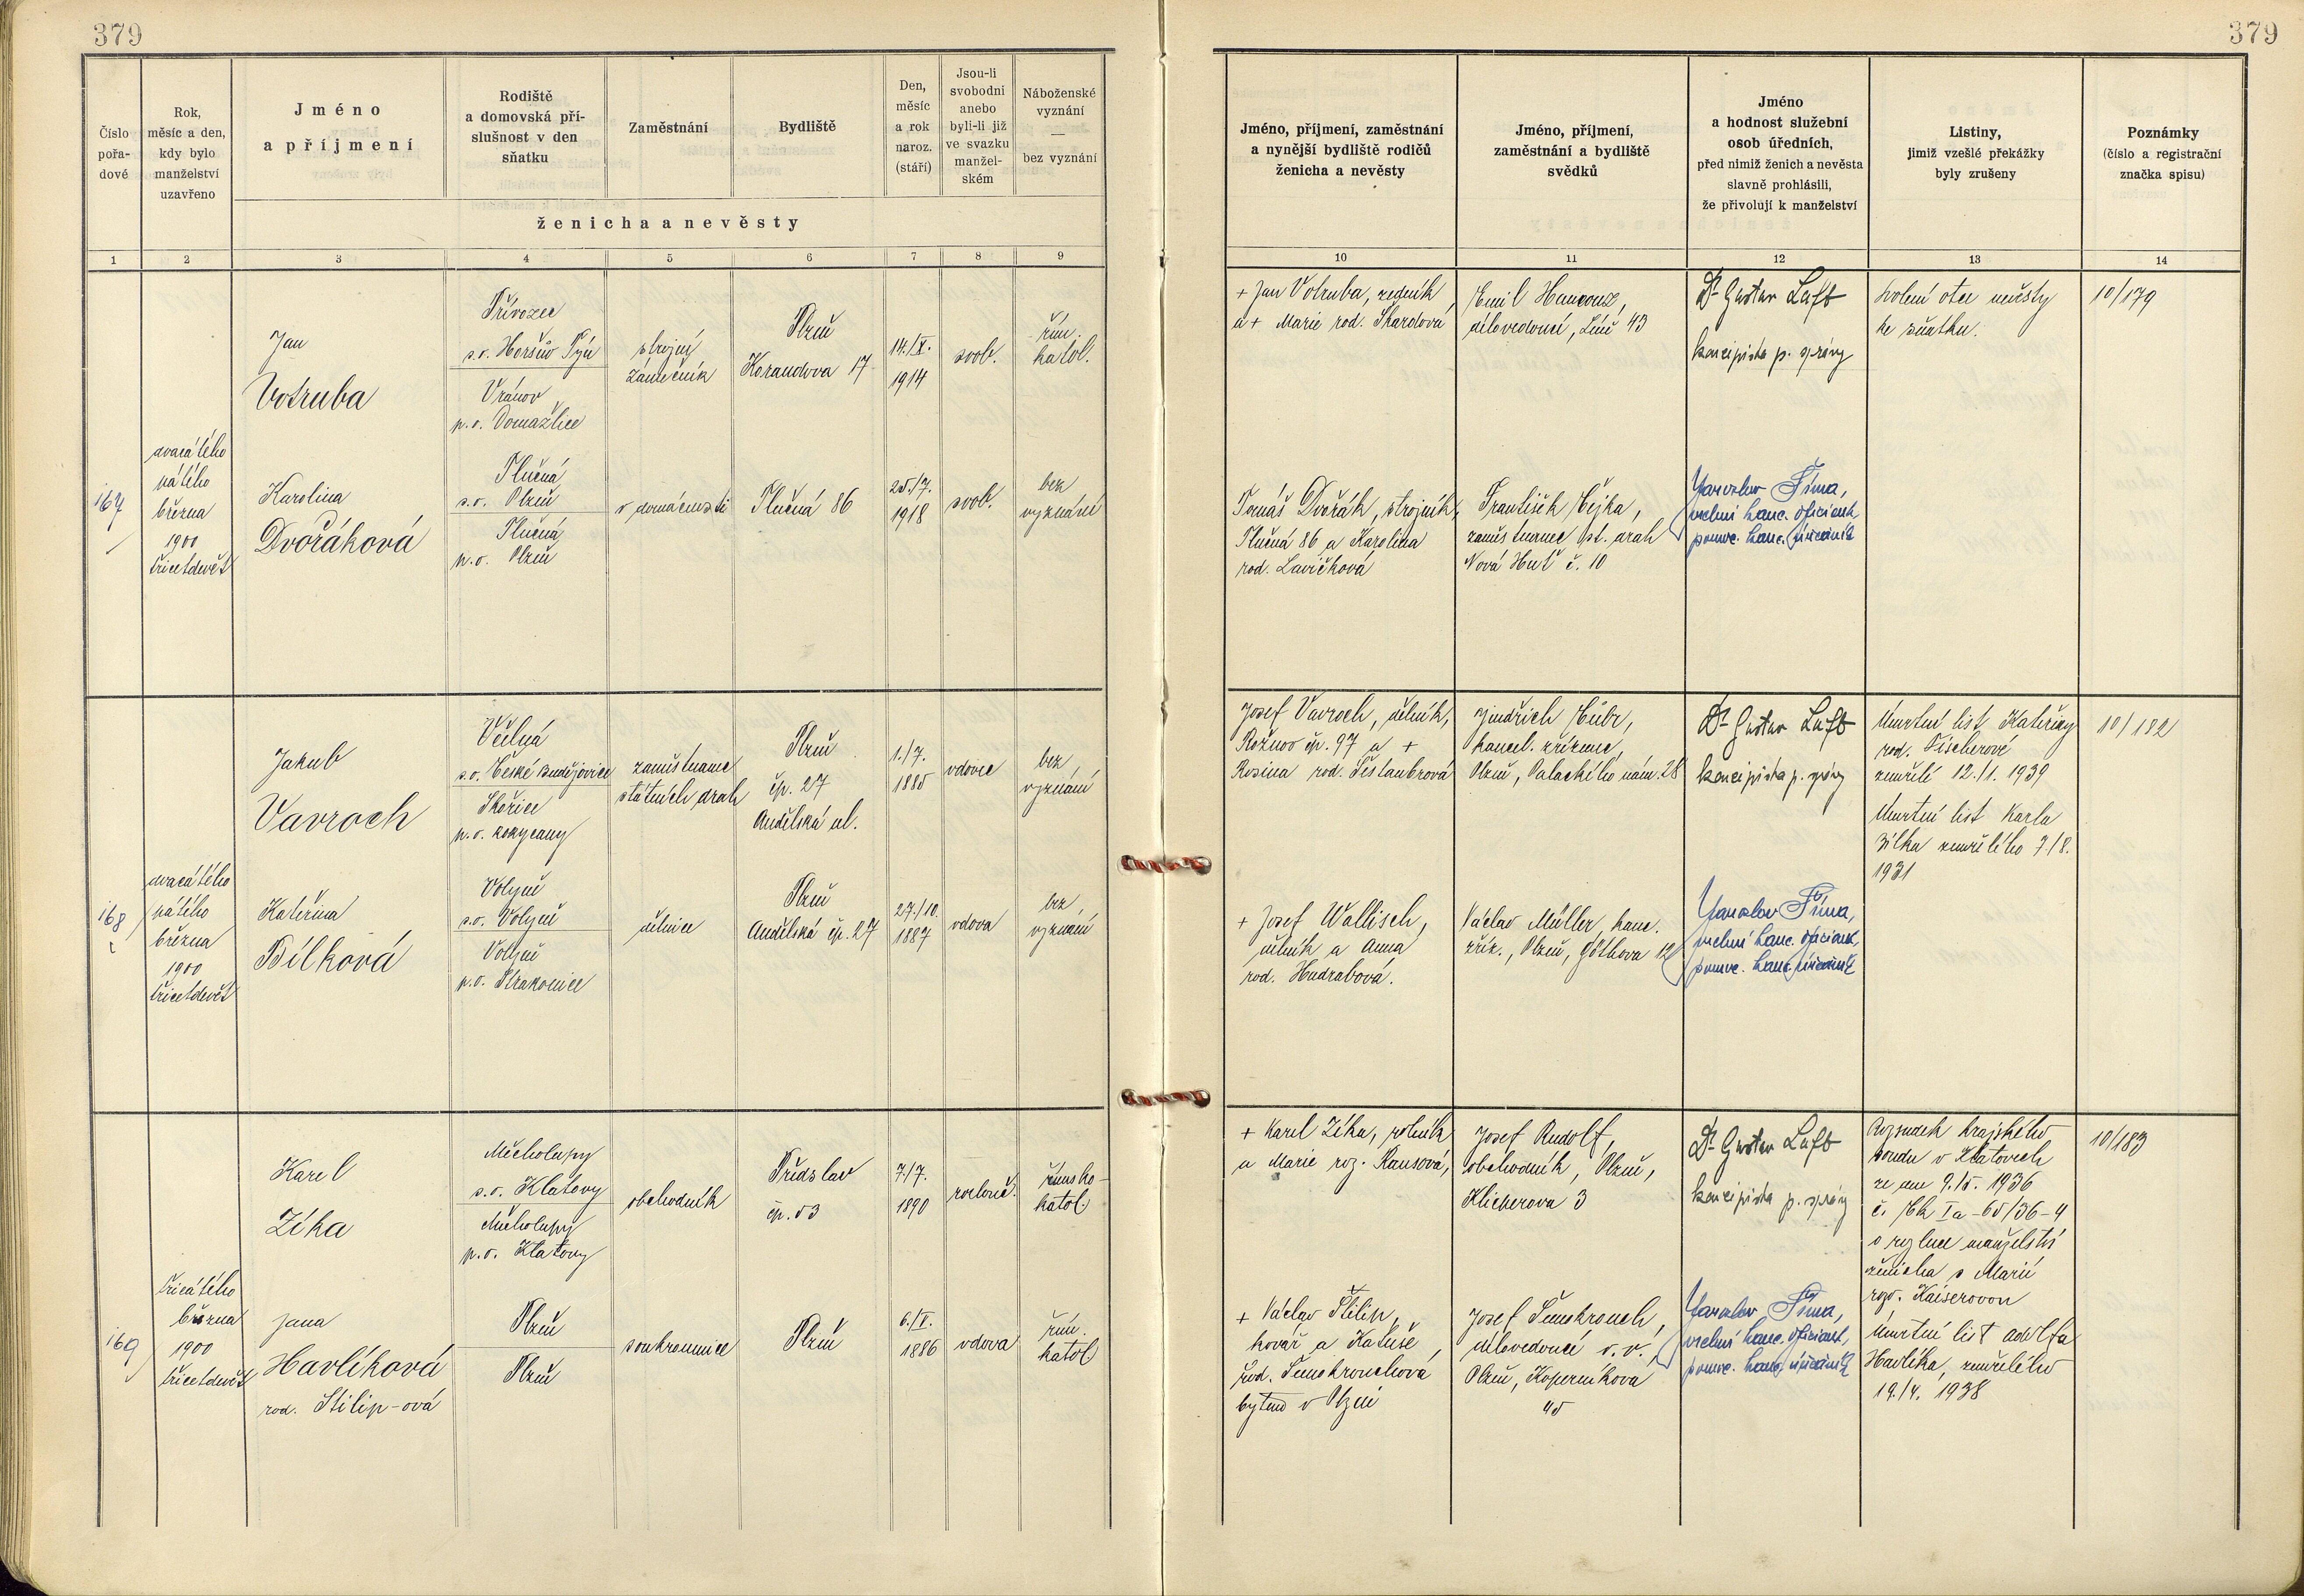 379
379
Číslo
pořa-
dové
Rok,
měsíc a den,
kdy bylo
manželství
uzavřeno
Jméno
a příjmení
Rodiště
a domovská pří-
slušnost v den
sňatku
Zaměstnání
Bydliště
Den,
měsíc
a rok
naroz.
(stáří)
Jsou-li
svobodni
anebo
byli-li již
ve svazku
manžel-
ském
Náboženské
vyznání
—
bez vyznání
ženicha a nevěsty
Jméno, příjmení, zaměstnání
a nynější bydliště rodičů
ženicha a nevěsty
Jméno, příjmení,
zaměstnání a bydliště
svědků
Jméno
a hodnost služební
osob úředních,
před nimiž ženich a nevěsta
slavně prohlásili,
že přivolují k manželství
Listiny,
jimiž vzešlé překážky
byly zrušeny
Poznámky
(číslo a registrační
značka spisu)
1 2 3 4 5 6 7 8 9
10 11 12 13 14
167
dvacátého
pátého
března
1900
třicetdevět
Jan
Votruba
Přívozec
s.o. Horšův Týn
Vránov
p.o. Domažlice
strojný
zámečník
Plzeň
Korandova 17
14./X.
1914
svob.
řím.
katol.
Karolina
Dvořáková
Tlučná
s.o. Plzeň
Tlučná
p.o. Plzeň
v domácnosti
Tlučná 86
25./7.
1918
svob.
bez
vyznání
+ Jan Votruba, ředník
a + Marie rod. Skardová
Emil
dílovedoucí, Líně 43
Dr Gustav Luft
koncipista p. správy
Svolení otce nevěsty
ke sňatku.
10/179
Tomáš Dvořák, strojník,
Tlučná 86 a Karolina
rod. Lavičková
František Čejka,
zaměstnanec st. drah
Nová Huť č. 10
Jaroslav Šíma,
vrchní kanc. oficiant
pomoc. kanc. úředník
168
dvacátého
pátého
března
1900
třicetdevět
Jakub
Vavroch
Včelná
s.o. České Budějovice
Skořice
p.o. Rokycany
zaměstnanec
státních drah
Plzeň
čp. 27
Andělská ul.
1./7.
1885
vdovec
bez
vyznání
Kateřina
Bílková
Volyně
s.o. Volyně
Volyně
p.o. Strakonice
dělnice
Plzeň
Andělská čp. 27
27./10.
1887
vdova
bez
vyznání
Josef Vavroch, dělník,
Rožnov čp. 97 a +
Rosina rod. Šestaubrová
Jindřich Hübr,
kancel. zřízenec,
Plzeň, Palackého nám. 28
Dr Gustav Luft
koncipista p. správy
Úmrtní list Kateřiny
rod. Fischerové
zemřelé 12./1. 1939
Úmrtní list Karla
Bílka zemřelého 7./8.
1931
10/182
+ Josef Wallisch,
dělník a Anna
rod. Hudrabová.
Václav Müller, kanc.
zříz., Plzeň, Göthova 12
Jaroslav Šíma,
vrchní kanc. oficiant,
pomoc. kanc. úředník
169
třicátého
března
1900
třicetdevět
Karel
Zíka
Měcholupy
s.o. Klatovy
Měcholupy
p.o. Klatovy
obchodník
Předslav
čp. 53
7./7.
1890
rozlouč.
římsko-
katol.
Jana
Havlíková
rod. Štilip-ová
Plzeň
Plzeň
soukromnice
Plzeň
6./V.
1886
vdova
řím.
katol
+ Karel Zíka, rolník
a Marie roz. Rausová,
Josef Rudolf,
obchodník, Plzeň,
Klicperova 3
Dr Gustav Luft
koncipista p. správy
Rozsudek krajského
soudu v Klatovech
ze dne 9./5. 1936
č. Ck Ia-65/36-4
o rozluce manželství
ženicha s Marií
roz. Kaiserovou
Úmrtní list Adolfa
Havlíka, zemřelého
19./4. 1938
10/183
+ Václav Štilip,
kovář a Katuše,
rod. Šmukrouchová
bytem v Plzni
Josef Šmukrouch,
dílovedoucí v. v.,
Plzeň, Koperníkova
45
Jaroslav Šíma,
vrchní kanc. oficiant,
pomoc. kanc. úředník